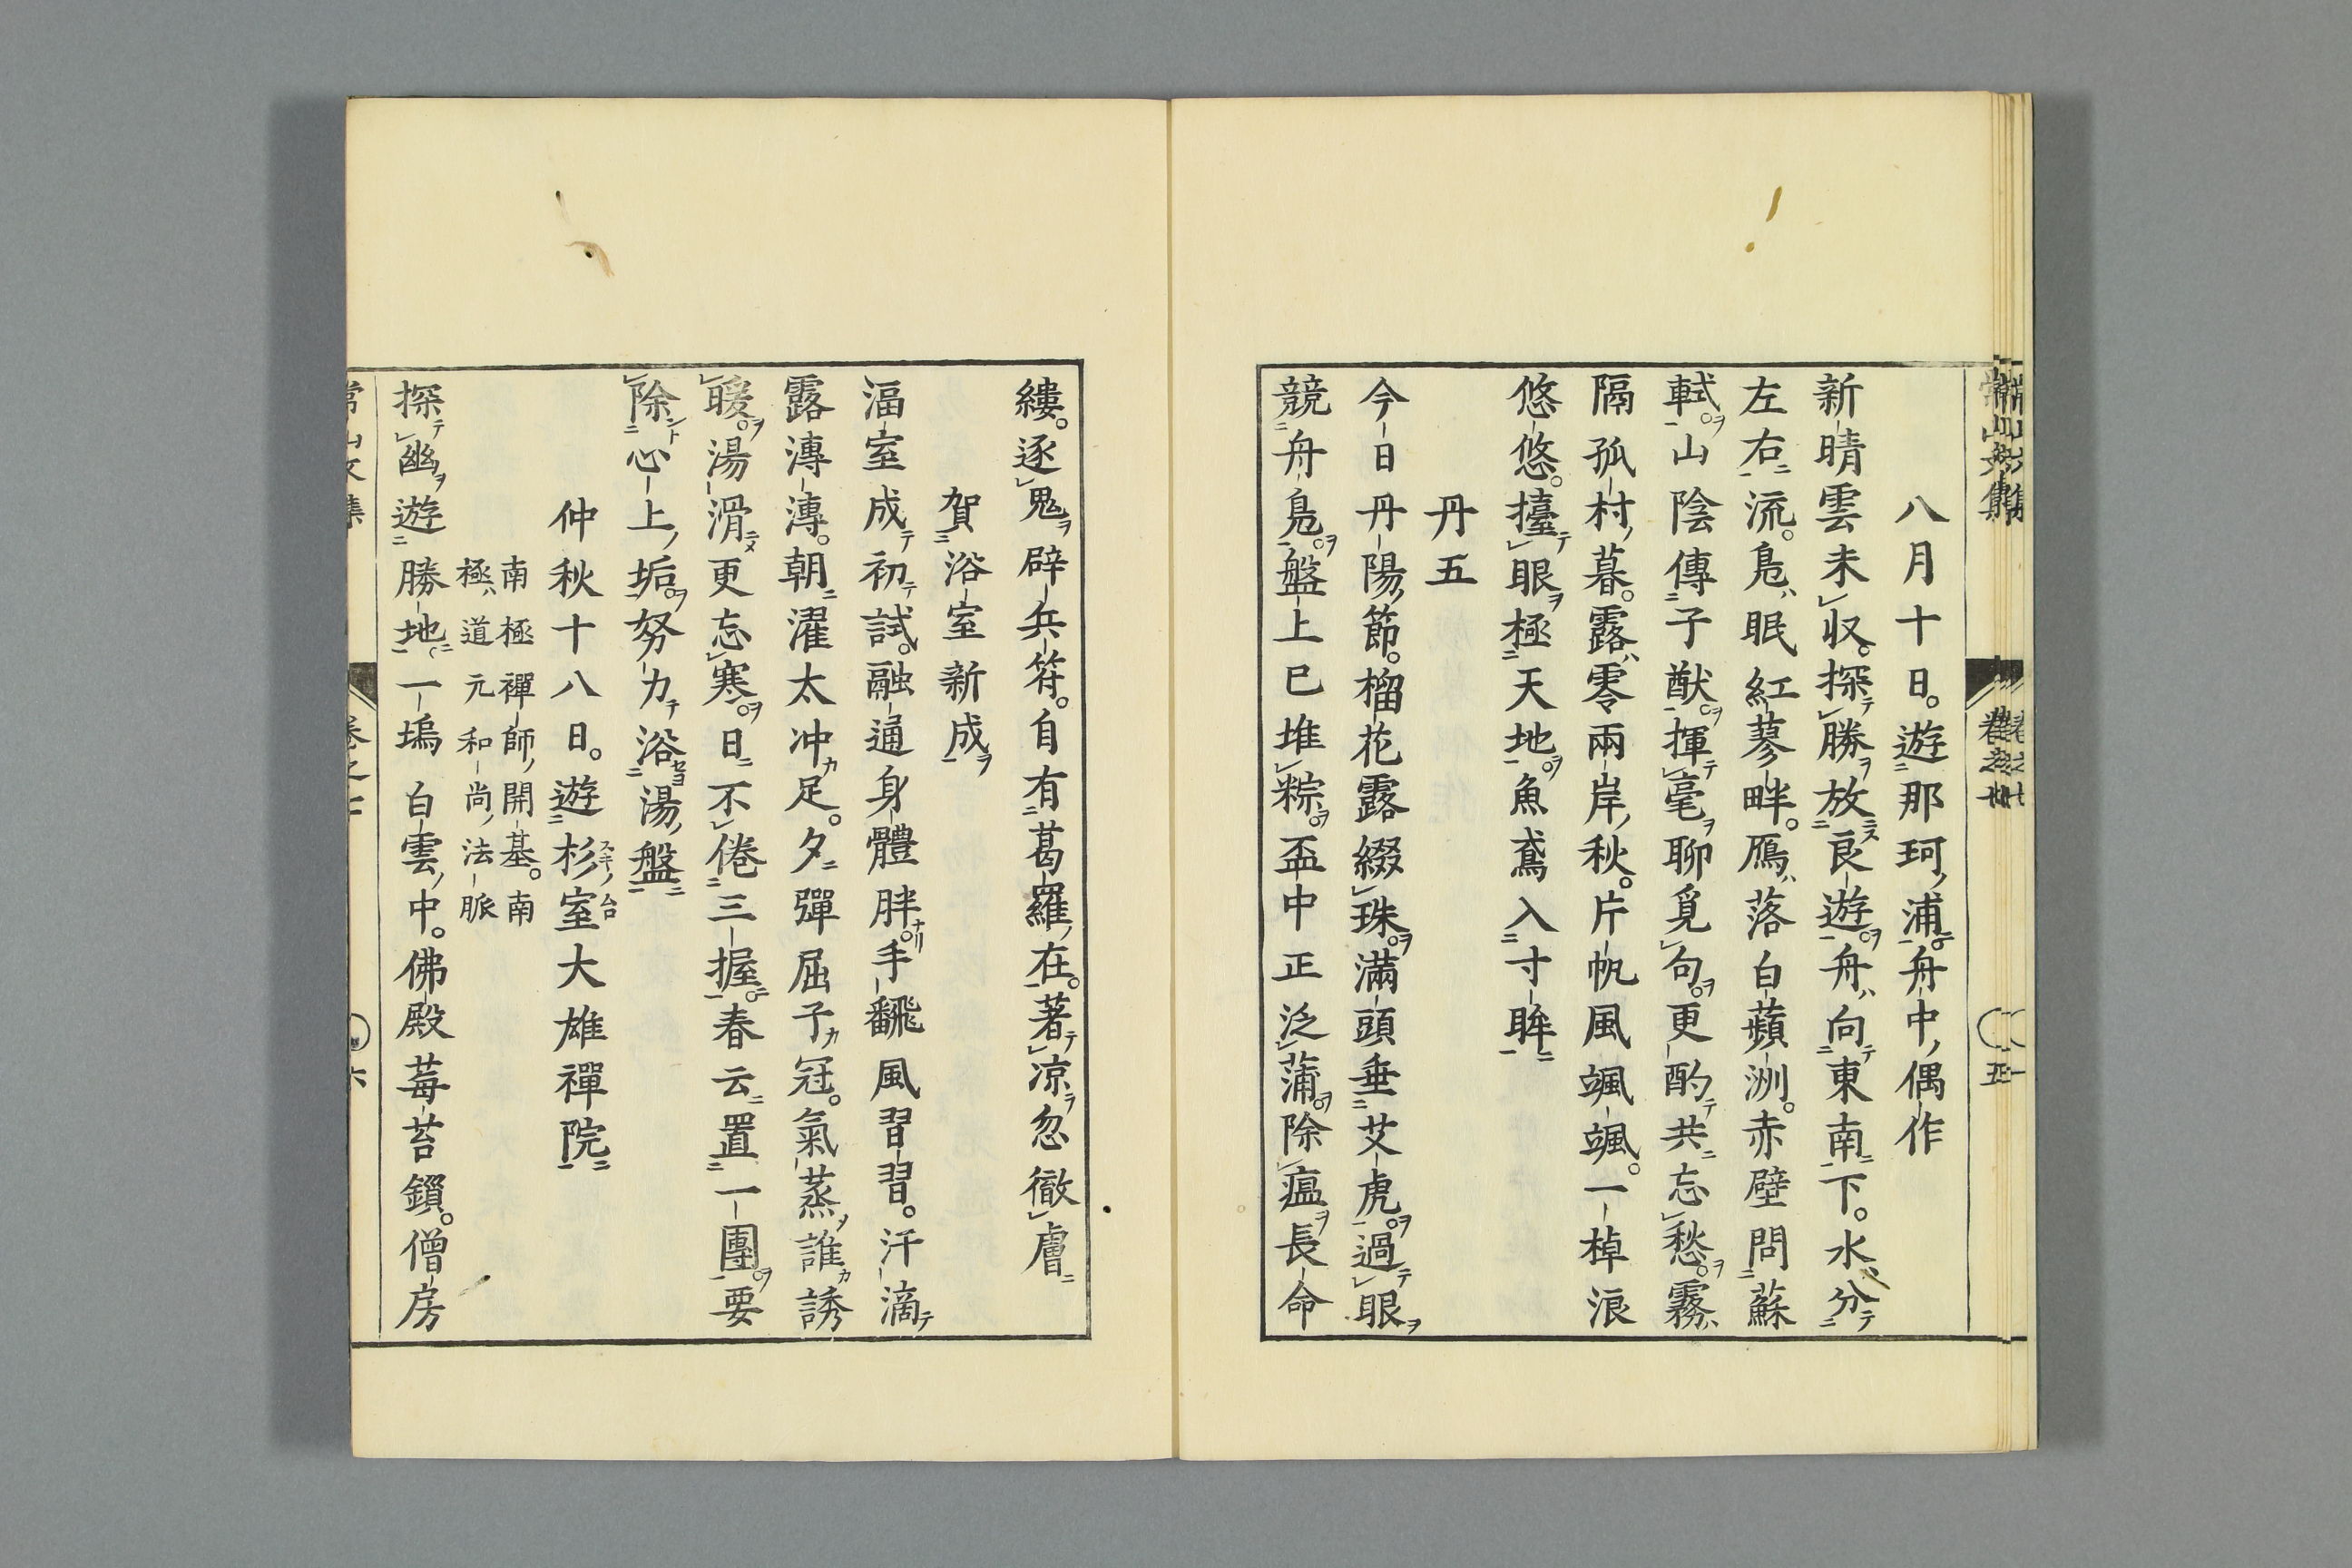 八月十日。遊那珂浦舟中偶作
新晴雲未收。探勝放良遊。舟向東南下。水分
左右流。鳧眠紅蓼畔。鴈落白蘋洲。赤壁問蘇
軾。山陰傳子猷。揮毫聊覓句。更酌共忘愁。霧
隔孤村暮。露零兩岸秋。片帆風颯颯。一棹浪
悠悠。擡眼極天地。魚鳶入寸眸
丹五
今日丹陽節。榴花露綴珠。滿頭垂艾虎。過眼
競舟鳧。盤上巳堆粽。盃中正泛蒲。除瘟長命
縷。逐鬼辟兵符。自有葛羅在。著凉忽徹膚
賀浴室新成
湢室成初試。融通身體胖。手飜風習習。汗滴
露漙漙。朝濯太冲足。夕彈屈子冠。氣蒸誰誘
暖。湯滑更忘寒。日不倦三握。春云置一團。要
除心上垢。努力浴湯盤
仲秋十八日。遊杉室大雄禪院
南極禪師開基。南
極道元和尚法脈
探幽遊勝地。一塢白雲中。佛殿莓苔鎖。僧房
常山文集
卷之十
六